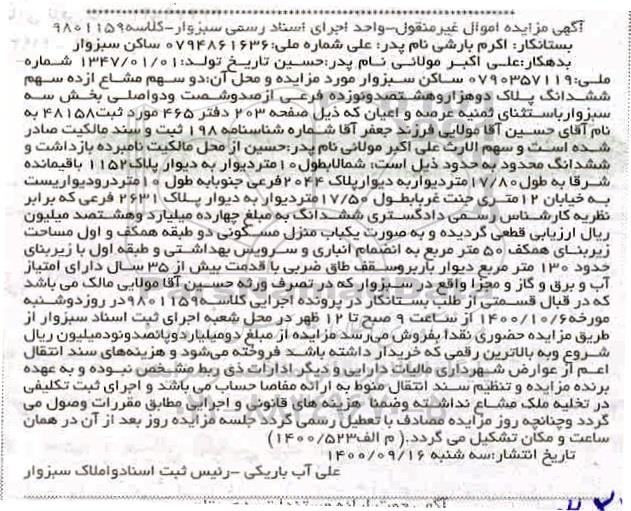 آگهی مزایده اموال غیرمنقول-واحد اجرای اسناد رسمی سبزوار-کلاسه9801159
بستانکار: اکرم بارشی نام پدر: علی شماره ملی:0794861636 ساکن سبزوار
بدهکار:علی اکبر مولائی نام پدر:حسین تاریخ تولد:1347/01/01 شماره
ملی:0790357119 ساکن سبزوار مورد مزایده و محل آن:دو سهم مشاع ازده سهم
ششدانگ پلاک دوهزاروهشتصدونوزده فرعی ازصدوشصت ودواصلی بخش سه
سبزوارباستثنای ثمنیه عرصه و اعیان که ذیل صفحه 203 دفتر 465 مورد ثبت48158 به
نام آقای حسین آقا مولایی فرزند جعفر آقا شماره شناسنامه 198 ثبت و سند مالکیت صادر
شده است و سهم الارث علی اکبر مولائی نام پدر:حسین از محل مالکیت نامبرده بازداشت و
ششدانگ محدود به حدود ذیل است: شمالابطول10متردیوار به دیوار پلاک1152 باقیمانده
شرقا به طول17/80متردیواربه دیوارپلاک 2044فرعی جنوبابه طول 10متردرودیواریست
به خیابان 12متری جنت غربابطول 17/50متردیوار به دیوار پلاک 2631 فرعی که برابر
نظریه کارشناس رسمی دادگستری ششدانگ به مبلغ چهارده میلیارد وهشتصد میلیون
ریال ارزیابی قطعی گردیده و به صورت یکباب منزل مسکونی دو طبقه همکف و اول مساحت
زیربنای همکف 50 متر مربع به انضمام انباری و سرویس بهداشتی و طبقه اول با زیربنای
حدود 130 متر مربع دیوار باربروسقف طاق ضربی با قدمت بیش از 35 سال دارای امتیاز
آب و برق و گاز و مجزا واقع در سبزوار که در تصرف ورثه حسین آقا مولایی مالک می باشد
که در قبال قسمتی از طلب بستانکار در پرونده اجرایی کلاسه9801159در روزدوشنبه
مورخه1400/10/6 از ساعت 9 صبح تا 12 ظهر در محل شعبه اجرای ثبت اسناد سبزوار از
طریق مزایده حضوری نقدا بفروش می‌رسد مزایده از مبلغ دومیلیاردوپانصدونودمیلیون ریال
شروع وبه بالاترین رقمی که خریدار داشته باشد فروخته می‌شود و هزینه‌های سند انتقال
اعم از عوارض شهرداری مالیات دارایی و دیگر ادارات ذی ربط مشخص نبوده و به عهده
برنده مزایده و تنظیم سند انتقال منوط به ارائه مفاصا حساب می باشد و اجرای ثبت تکلیفی
در تخلیه ملک مشاع نداشته وضمنا هزینه های قانونی و اجرایی مطابق مقررات وصول می
گردد وچنانچه روز مزایده مصادف با تعطیل رسمی گردد جلسه مزایده روز بعد از آن در همان
ساعت و مکان تشکیل می گردد.( م الف1400/523)
تاریخ انتشار:سه شنبه 1400/09/16
علی آب باریکی -رئیس ثبت اسنادواملاک سبزوار